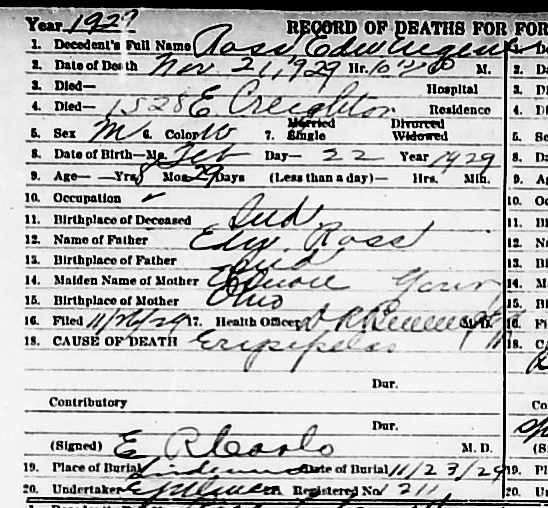 Year 1929 RECORD OF DEATHS FOR FOR
1. Decedent's Full Name Ross Edw Eugene
2. Date of Death Nov 21, 1929 Hr. 10 M.
3. Died— Hospital
4. Died— 1528 E Creighton Residence
5. Sex M 6. Color W 7. Married Single Divorced Widowed
8. Date of Birth—Mo. Feb Day— 22 Year 1929
9. Age— —Yrs 8 Mos 29 Days (Less than a day)— Hrs. Min.
10. Occupation ✓
11. Birthplace of Deceased Ind
12. Name of Father Edw. Ross
13. Birthplace of Father Ind
14. Maiden Name of Mother
15. Birthplace of Mother Ohio
16. Filed 11/26/29 17. Health Officer M.D.
18. CAUSE OF DEATH Erysipelas
Dur.
Contributory
Dur.
(Signed) E R Carlo M. D.
19. Place of Burial Lindenwood Date of Burial 11/23/29
20. Undertaker Registered No 211